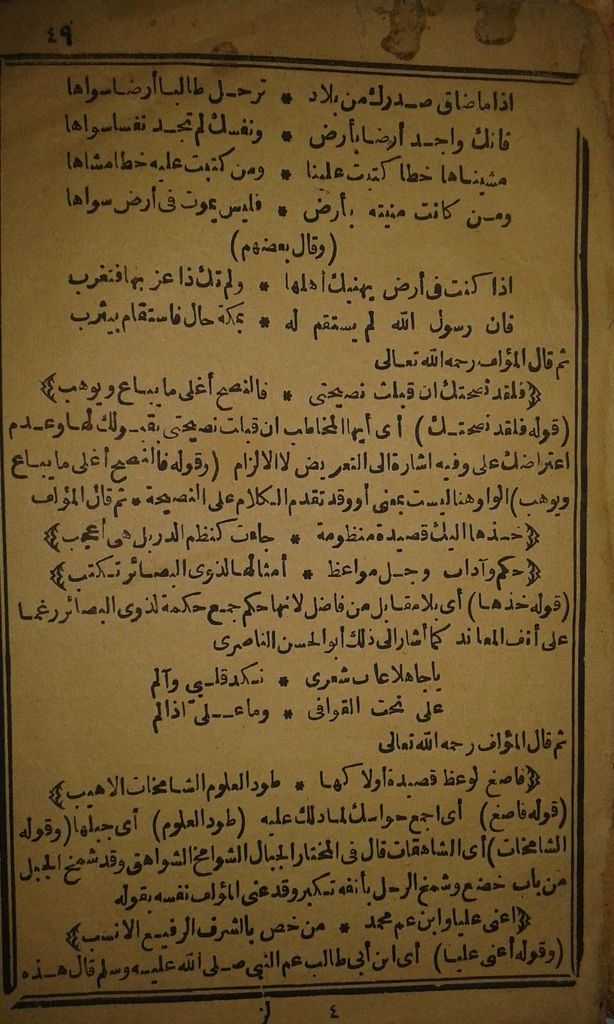 ٤٩
اذا ما ضاق صدرك من بلاد * ترحل طالبا أرضا سواها
فانك واجد أرضا بأرض * ونفسك لم تجد نفسا سواها
مشيناها خطا كتبت علينا * ومن كتبت عليه خطا مشاها
ومن كانت منيته بأرض * فليس يموت فى أرض سواها
(وقال بعضهم)
اذا كنت فى أرض يهينك أهلها * ولم تك ذا عز بها فتغرب
فان رسول الله لم يستقم له * بمكة حال فاستقام بيثرب
ثم قال المؤلف رحمه الله تعالى
﴿فلقد نصحتك ان قبلت نصيحتى * فالنصح أغلى ما يباع ويوهب﴾
(قوله فلقد نصحتك) أى أيها المخاطب ان قبلت نصيحتى بقبولك لها وعدم
اعتراضك على وفيه اشارة الى التعريض لا الالزام (وقوله فالنصح أغلى ما يباع
ويوهب) الواو هنا ليست بمعنى أو وقد تقدم الكلام على النصيحة * ثم قال المؤلف
﴿خذها اليك قصيدة منظومة * جاءت كنظم الدر بل هى أعجب﴾
﴿حكم وآداب وجل مواعظ * أمثالها لذوى البصائر تكتب﴾
(قوله خذها) أى بلا مقابل من فاضل لانها حكم جمع حكمة لذوى البصائر رغما
على أنف المعاند كما أشار الى ذلك أبو الحسن الناصرى
يا جاهلا عاب شعرى * نكد قلبي وآلم
على نحت القوافى * وما على اذا لم
ثم قال المؤلف رحمه الله تعالى
﴿فاصغ لوعظ قصيدة أولاكها * طود العلوم الشامخات الاهيب﴾
(قوله فاصغ) أى اجمع حواسك لما دلك عليه (طود العلوم) أى جبلها (وقوله
الشامخات) أى الشاهقات قال فى المختار الجبال الشوامخ الشواهق وقد شمخ الجبل
من باب خضع وشمخ الرجل بأنفه تكبر وقد عنى المؤلف نفسه بقوله
﴿أعنى عليا وابن عم محمد * من خص بالشرف الرفيع الانسب﴾
(وقوله أعنى عليا) أى ابن أبى طالب عم النبى صلى الله عليه وسلم قال هذه
٤